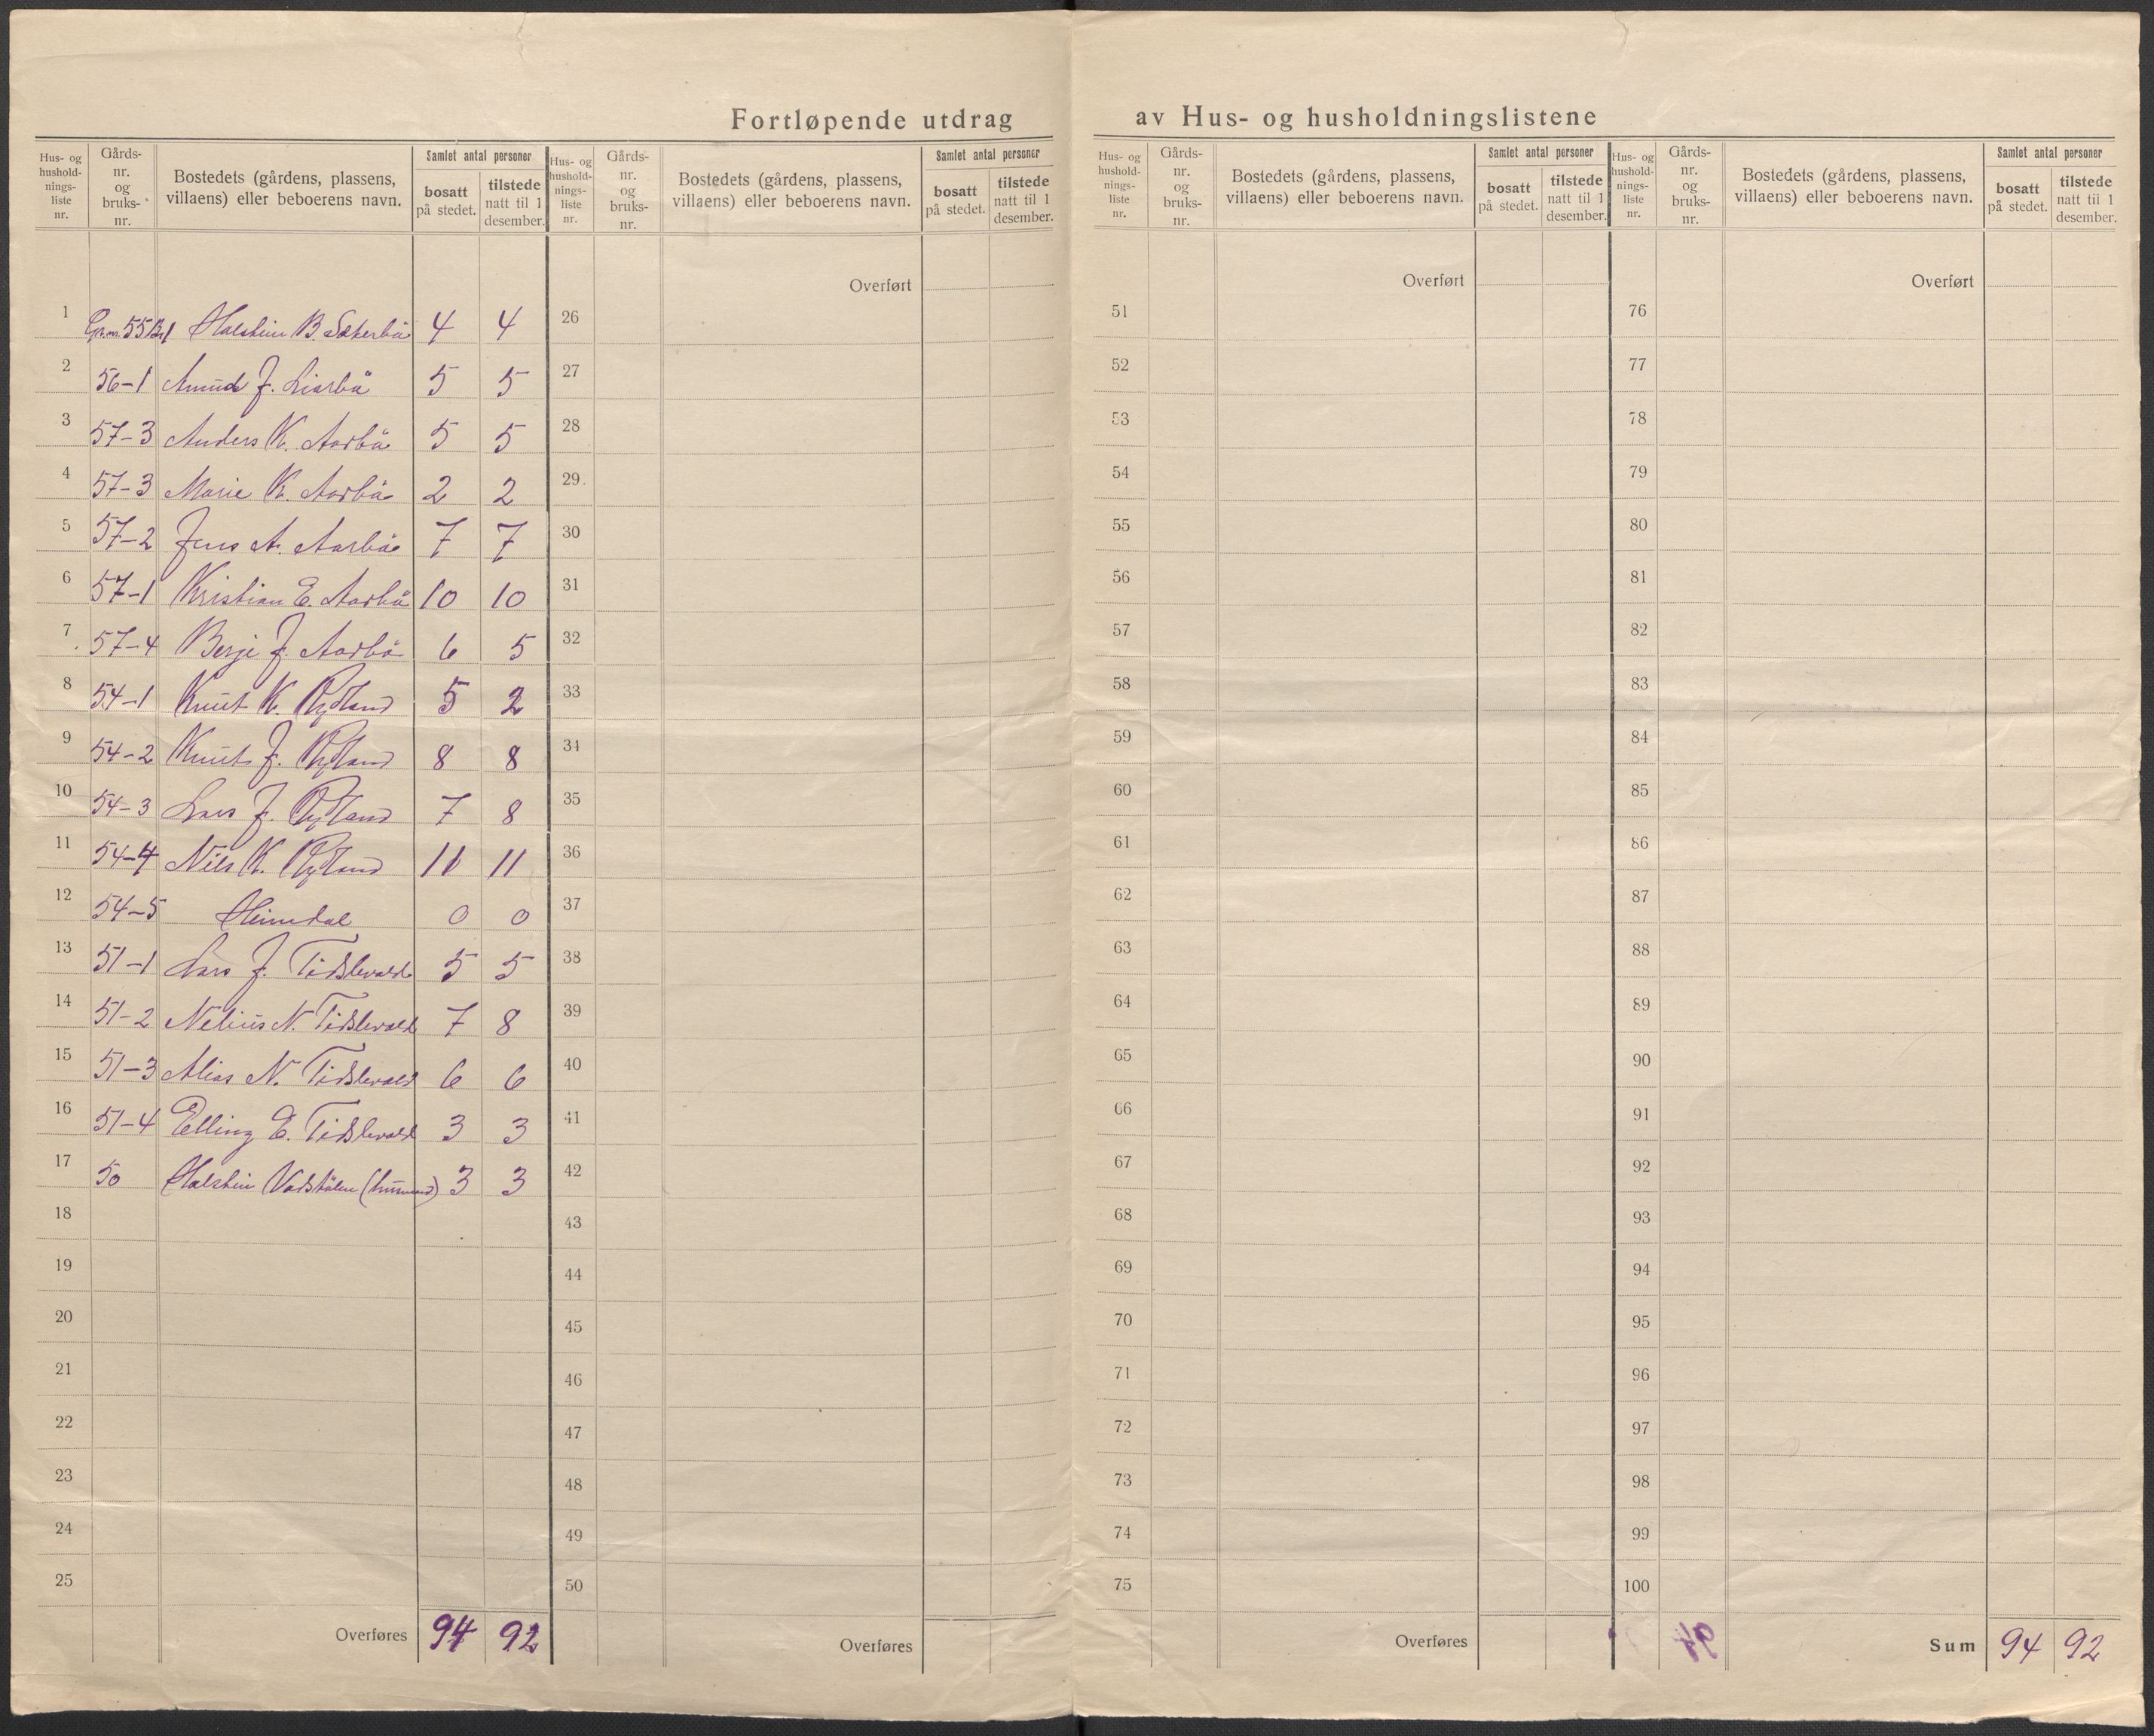 Fortløpende utdrag av Hus- og husholdningslistene
Hus- og hushold-nings-liste nr. Gårds-nr. og bruks-nr. Bostedets (gårdens, plassens, villaens) eller beboerens navn. Samlet antal personer bosatt på stedet. tilstede natt til 1 desember.
1 Gr.nr. 55 Br 1 Halstein B. Sæterbø 4 4
2 56-1 Amund J. Liarbø 5 5
3 57-3 Anders K. Aarbø 5 5
4 57-3 Marie K. Aarbø 2 2
5 57-2 Jens A. Aarbø 7 7
6 57-1 Kristian E. Aarbø 10 10
7 57-4 Berje J. Aarbø 6 5
8 54-1 Knut K. Rylland 5 2
9 54-2 Knut J. Rylland 8 8
10 54-3 Lars J. Rylland 7 8
11 54-4 Nils K. Rylland 11 11
12 54-5 Heimdal 0 0
13 51-1 Lars J. Tidslevold 5 5
14 51-2 Nelius N. Tidslevold 7 8
15 51-3 Alias N. Tidslevold 6 6
16 51-4 Elling E. Tidslevold 3 3
17 50 Halstein Vadstølen 3 3
18
19
20
21
22
23
24
25
Overføres 94 92
Hus- og hushold-nings-liste nr. Gårds-nr. og bruks-nr. Bostedets (gårdens, plassens, villaens) eller beboerens navn. Samlet antal personer bosatt på stedet. tilstede natt til 1 desember.
Overført
26
27
28
29
30
31
32
33
34
35
36
37
38
39
40
41
42
43
44
45
46
47
48
49
50
Overføres
Hus- og hushold-nings-liste nr. Gårds-nr. og bruks-nr. Bostedets (gårdens, plassens, villaens) eller beboerens navn. Samlet antal personer bosatt på stedet. tilstede natt til 1 desember.
Overført
51
52
53
54
55
56
57
58
59
60
61
62
63
64
65
66
67
68
69
70
71
72
73
74
75
Overføres
Hus- og hushold-nings-liste nr. Gårds-nr. og bruks-nr. Bostedets (gårdens, plassens, villaens) eller beboerens navn. Samlet antal personer bosatt på stedet. tilstede natt til 1 desember.
Overført
76
77
78
79
80
81
82
83
84
85
86
87
88
89
90
91
92
93
94
95
96
97
98
99
100
Sum 94 92